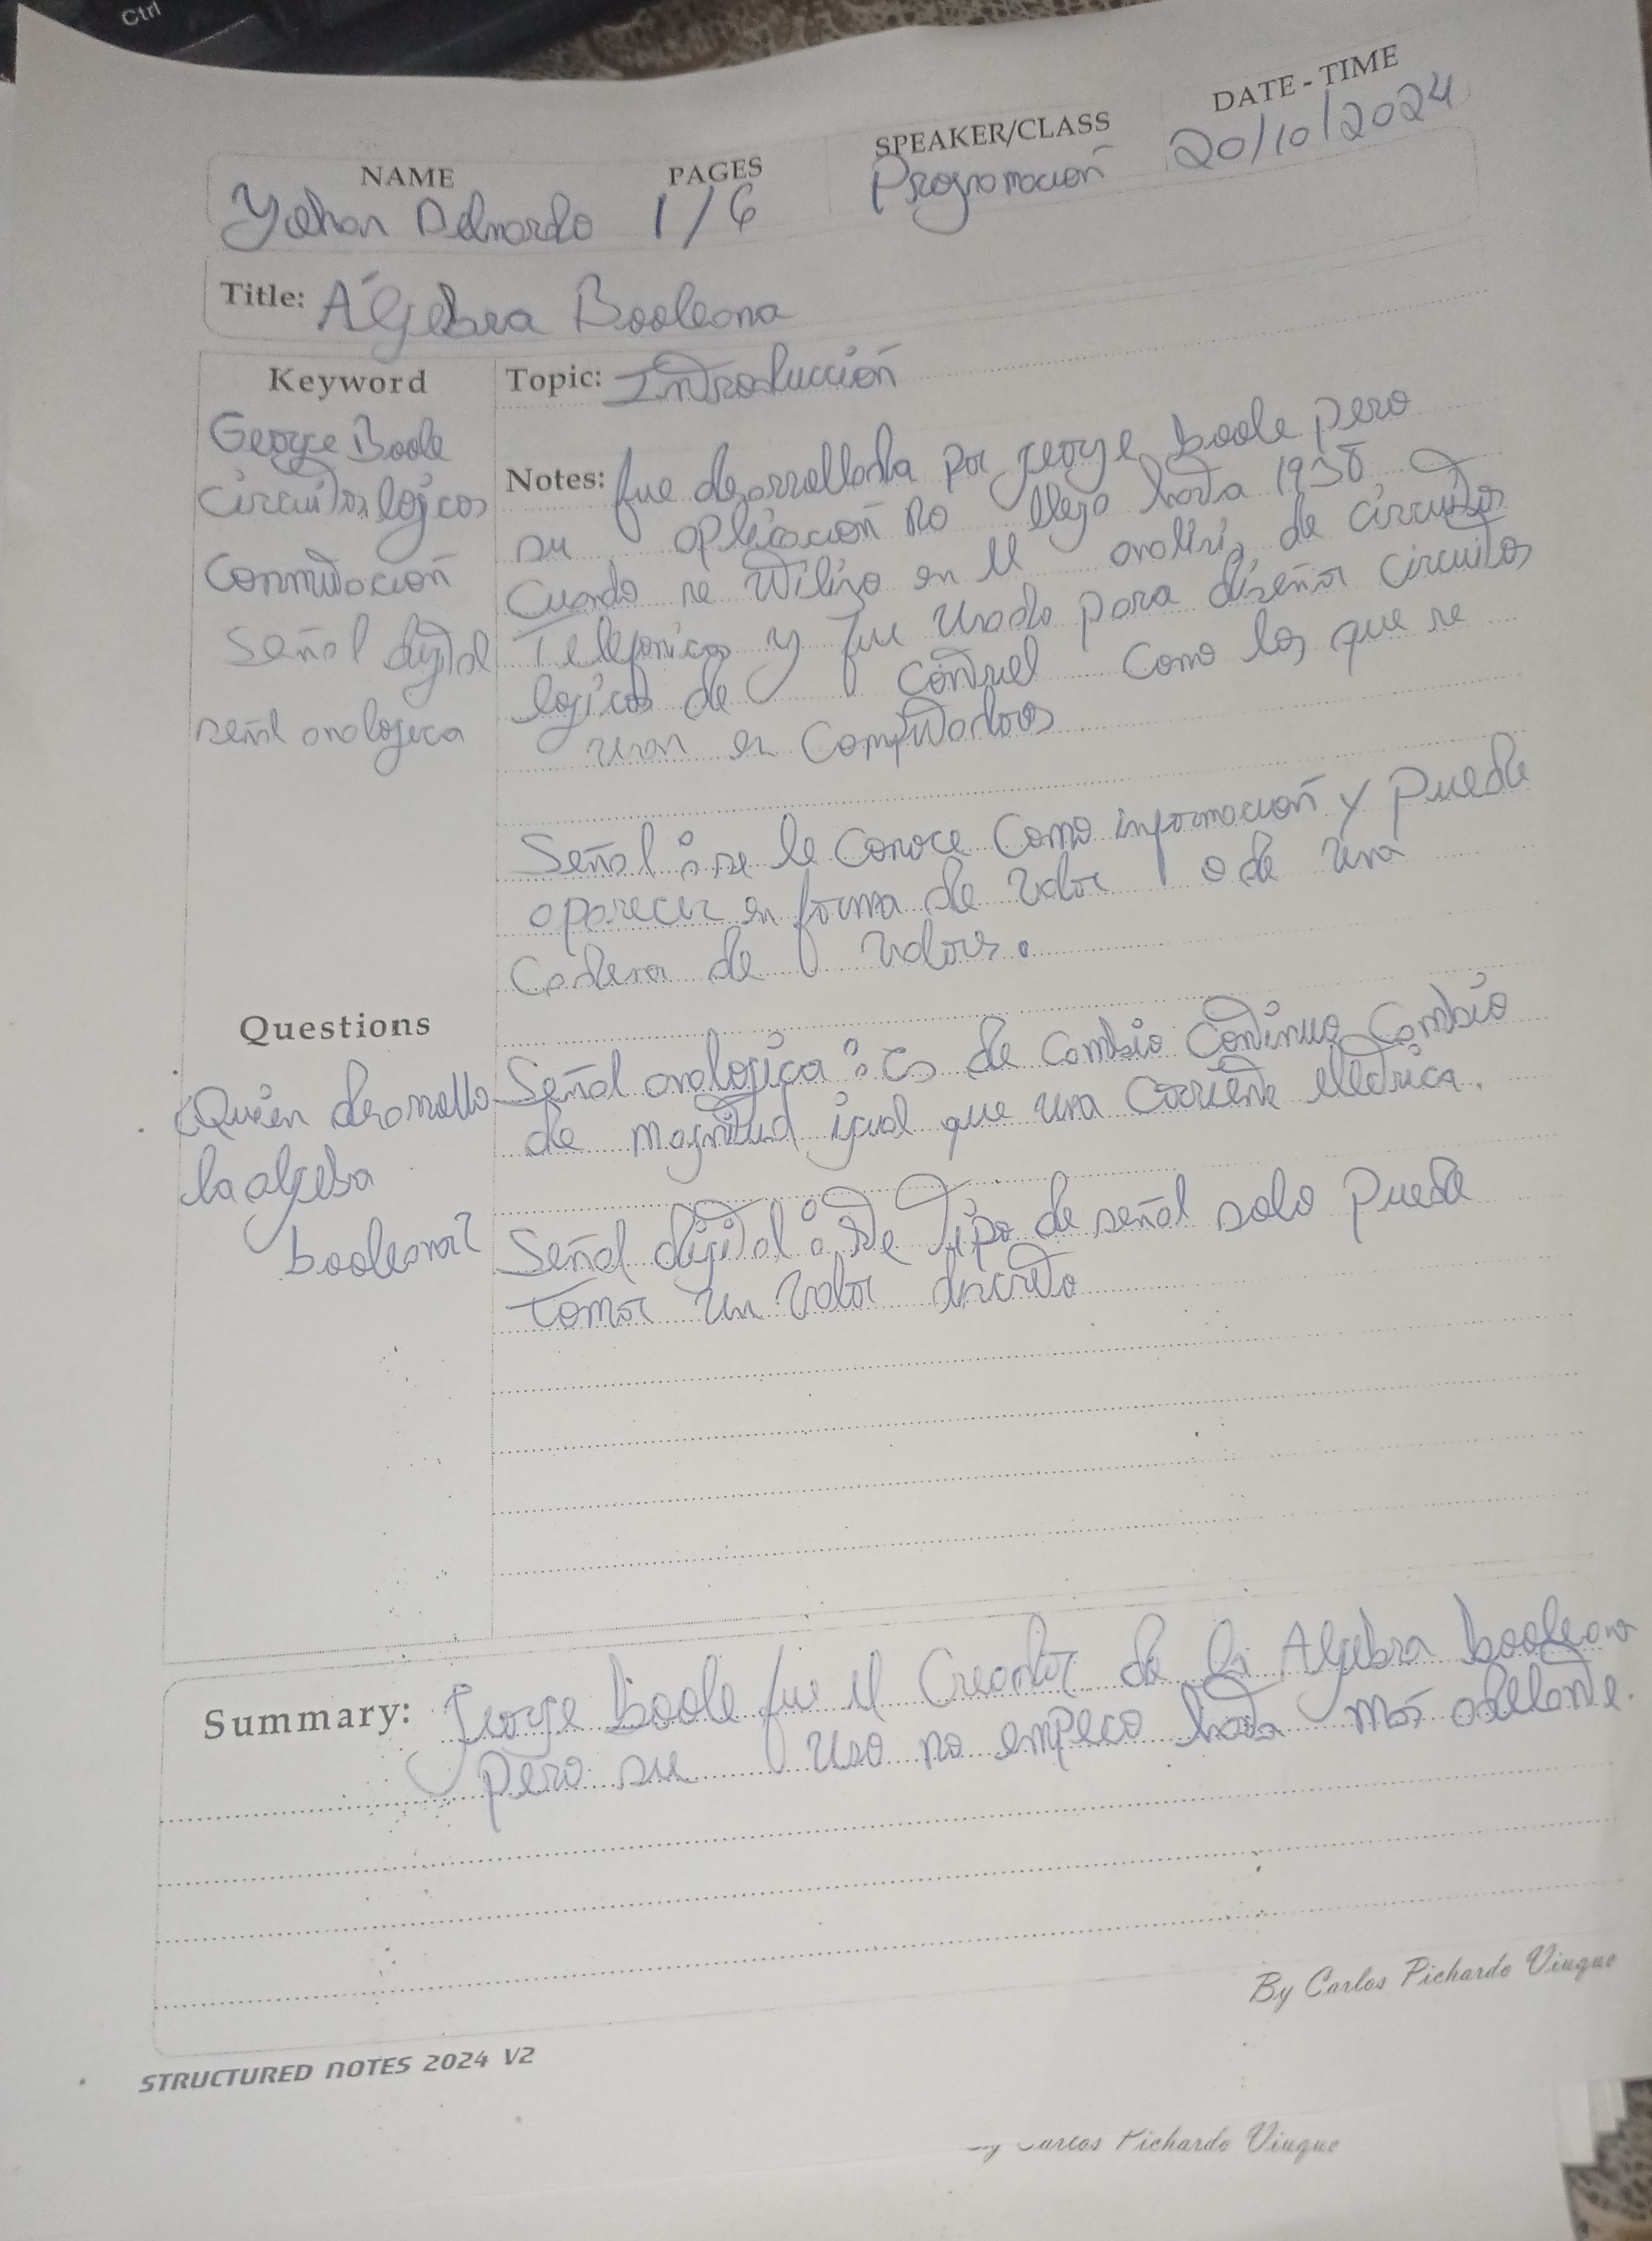 Ctrl
NAME PAGES SPEAKER/CLASS DATE - TIME
Yohan 1/6 Programación 20/10/2024
Title: Álgebra Booleana
Keyword
George Boole
circuitos logicos
Conmutación
Señal digital
señal analogica
Topic: Introducción
Notes: fue desarrollada por george boole pero
su aplicación no llego hasta 1938
Cuando se utilizo en el analisis de circuitos
Telefonicos y fue usado para diseñar circuitos
logicos de control como los que se
usan en Computadoras
Señal : se le conoce como información y puede
aparecer en forma de valor o de una
Cadena de valores.
Señal analogica : es de cambio continuo, cambio
de magnitud igual que una corriente electrica.
Señal digital : este tipo de señal solo puede
tomar un valor discreto
Questions
¿Quien desarrollo
la algeba
booleana?
Summary: george boole fue el Creador de la Algebra booleana
pero su uso no empeco hasta más adelante.
By Carlos Pichardo Viuque
STRUCTURED NOTES 2024 V2
By Carlos Pichardo Viuque